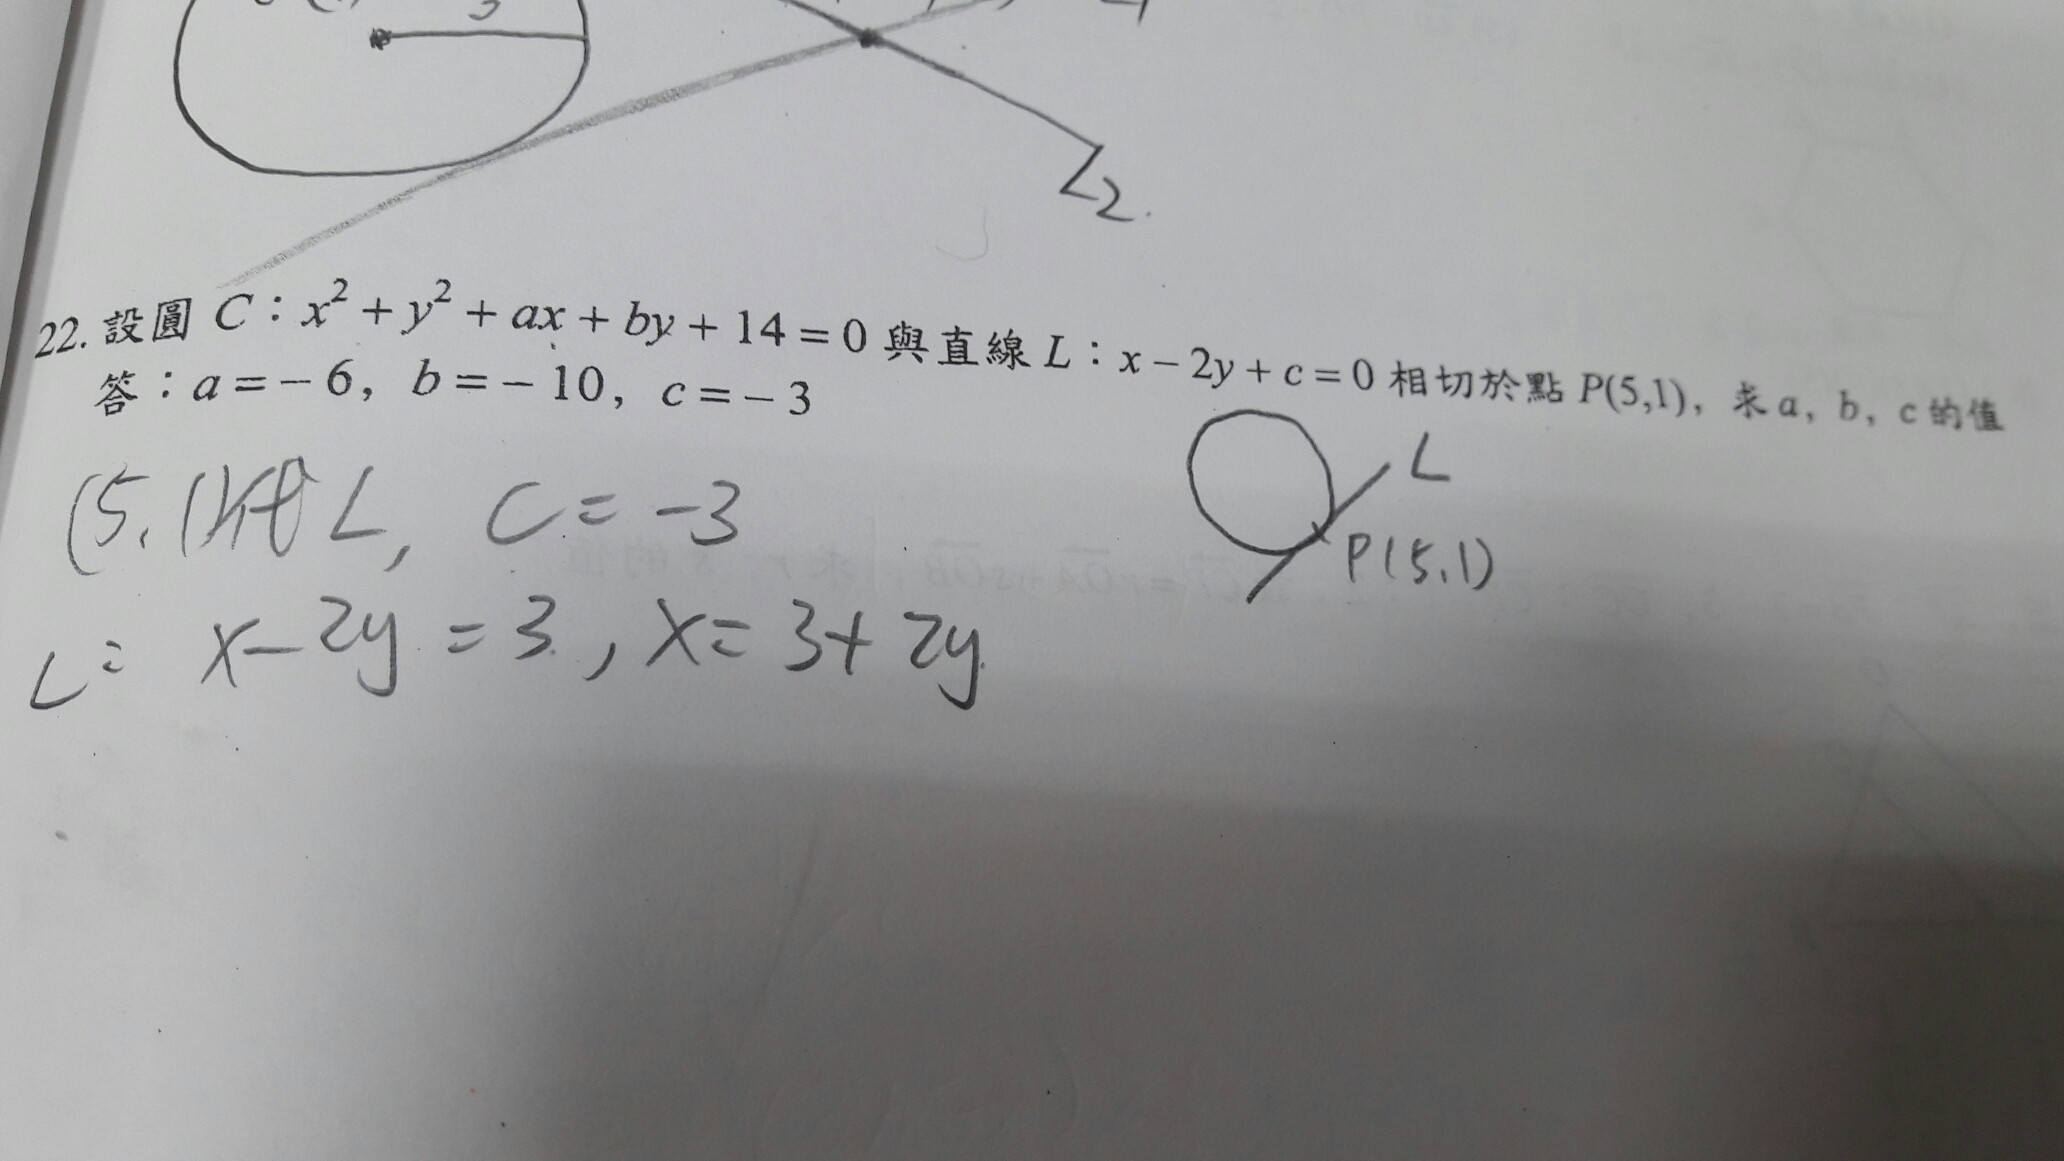 3
L2.
22. 設圓 C：x²+y²+ax+by+14=0 與直線 L：x-2y+c=0 相切於點 P(5,1), 求 a, b, c 的值
答：a=-6, b=-10, c=-3
L
P(5,1)
(5,1)代 L, C=-3
L: x-2y=3, x=3+2y